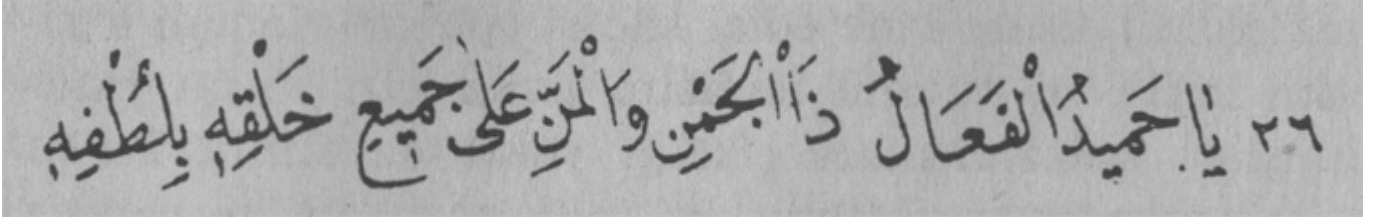 ٢٦ يَا حَمِيدُ الْفَعَالُ ذَا الْجَمَنِ وَالْمَنِّ عَلَى جَمِيعِ خَلْقِهِ بِلُطْفِهِ